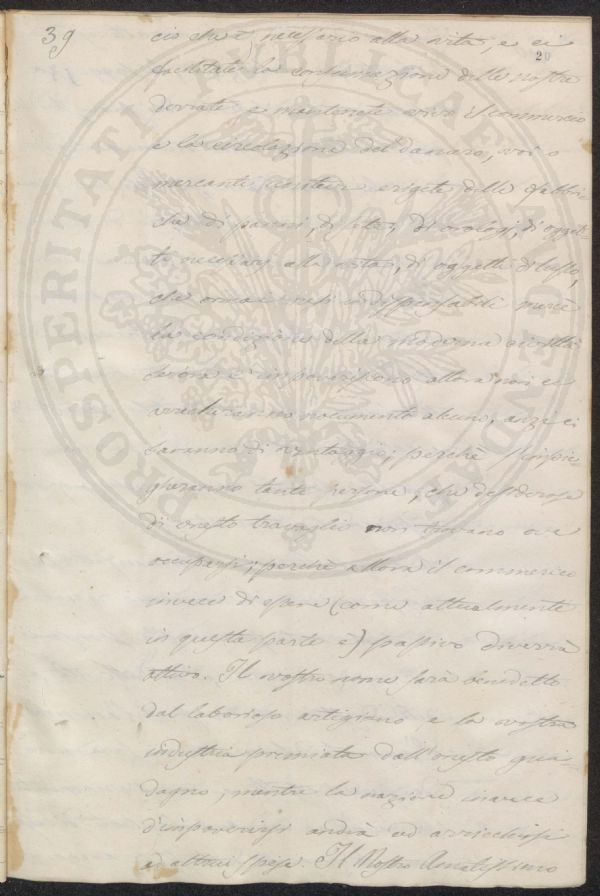 39
20
ciò che è necessario alla vita, e ci
facilitate la consumazione delle nostre
derrate e mantenete vivo il commercio
e la circolazione del danaro, voi o
mercanti erigete delle fabbri-
che di panni, di seta, di orologi, di ogget-
ti necessarj alla vita, di oggetti di lusso,
che ormai resi indispensabili mercè
la condizione della moderna
e impoveriscono allora noi e
arrecheranno nocumento alcuno, anzi ci
saranno di vantaggio; perchè s'impie-
gheranno tante persone, che desiderose
di onesto travaglio non trovano ove
occuparsi; perchè allora il commercio
invece di essere (come attualmente
in questa parte è) passivo diverrà
attivo. Il vostro nome sarà benedetto
dal laborioso artigiano e la vostra
industria premiata dall'onesto gua-
dagno, mentre la nazione invece
d'impoverirsi andrà ad arricchirsi
ad altrui spese. Il Nostro Amatissimo
PROSPERITATI PUBLICAE AUGENDAE